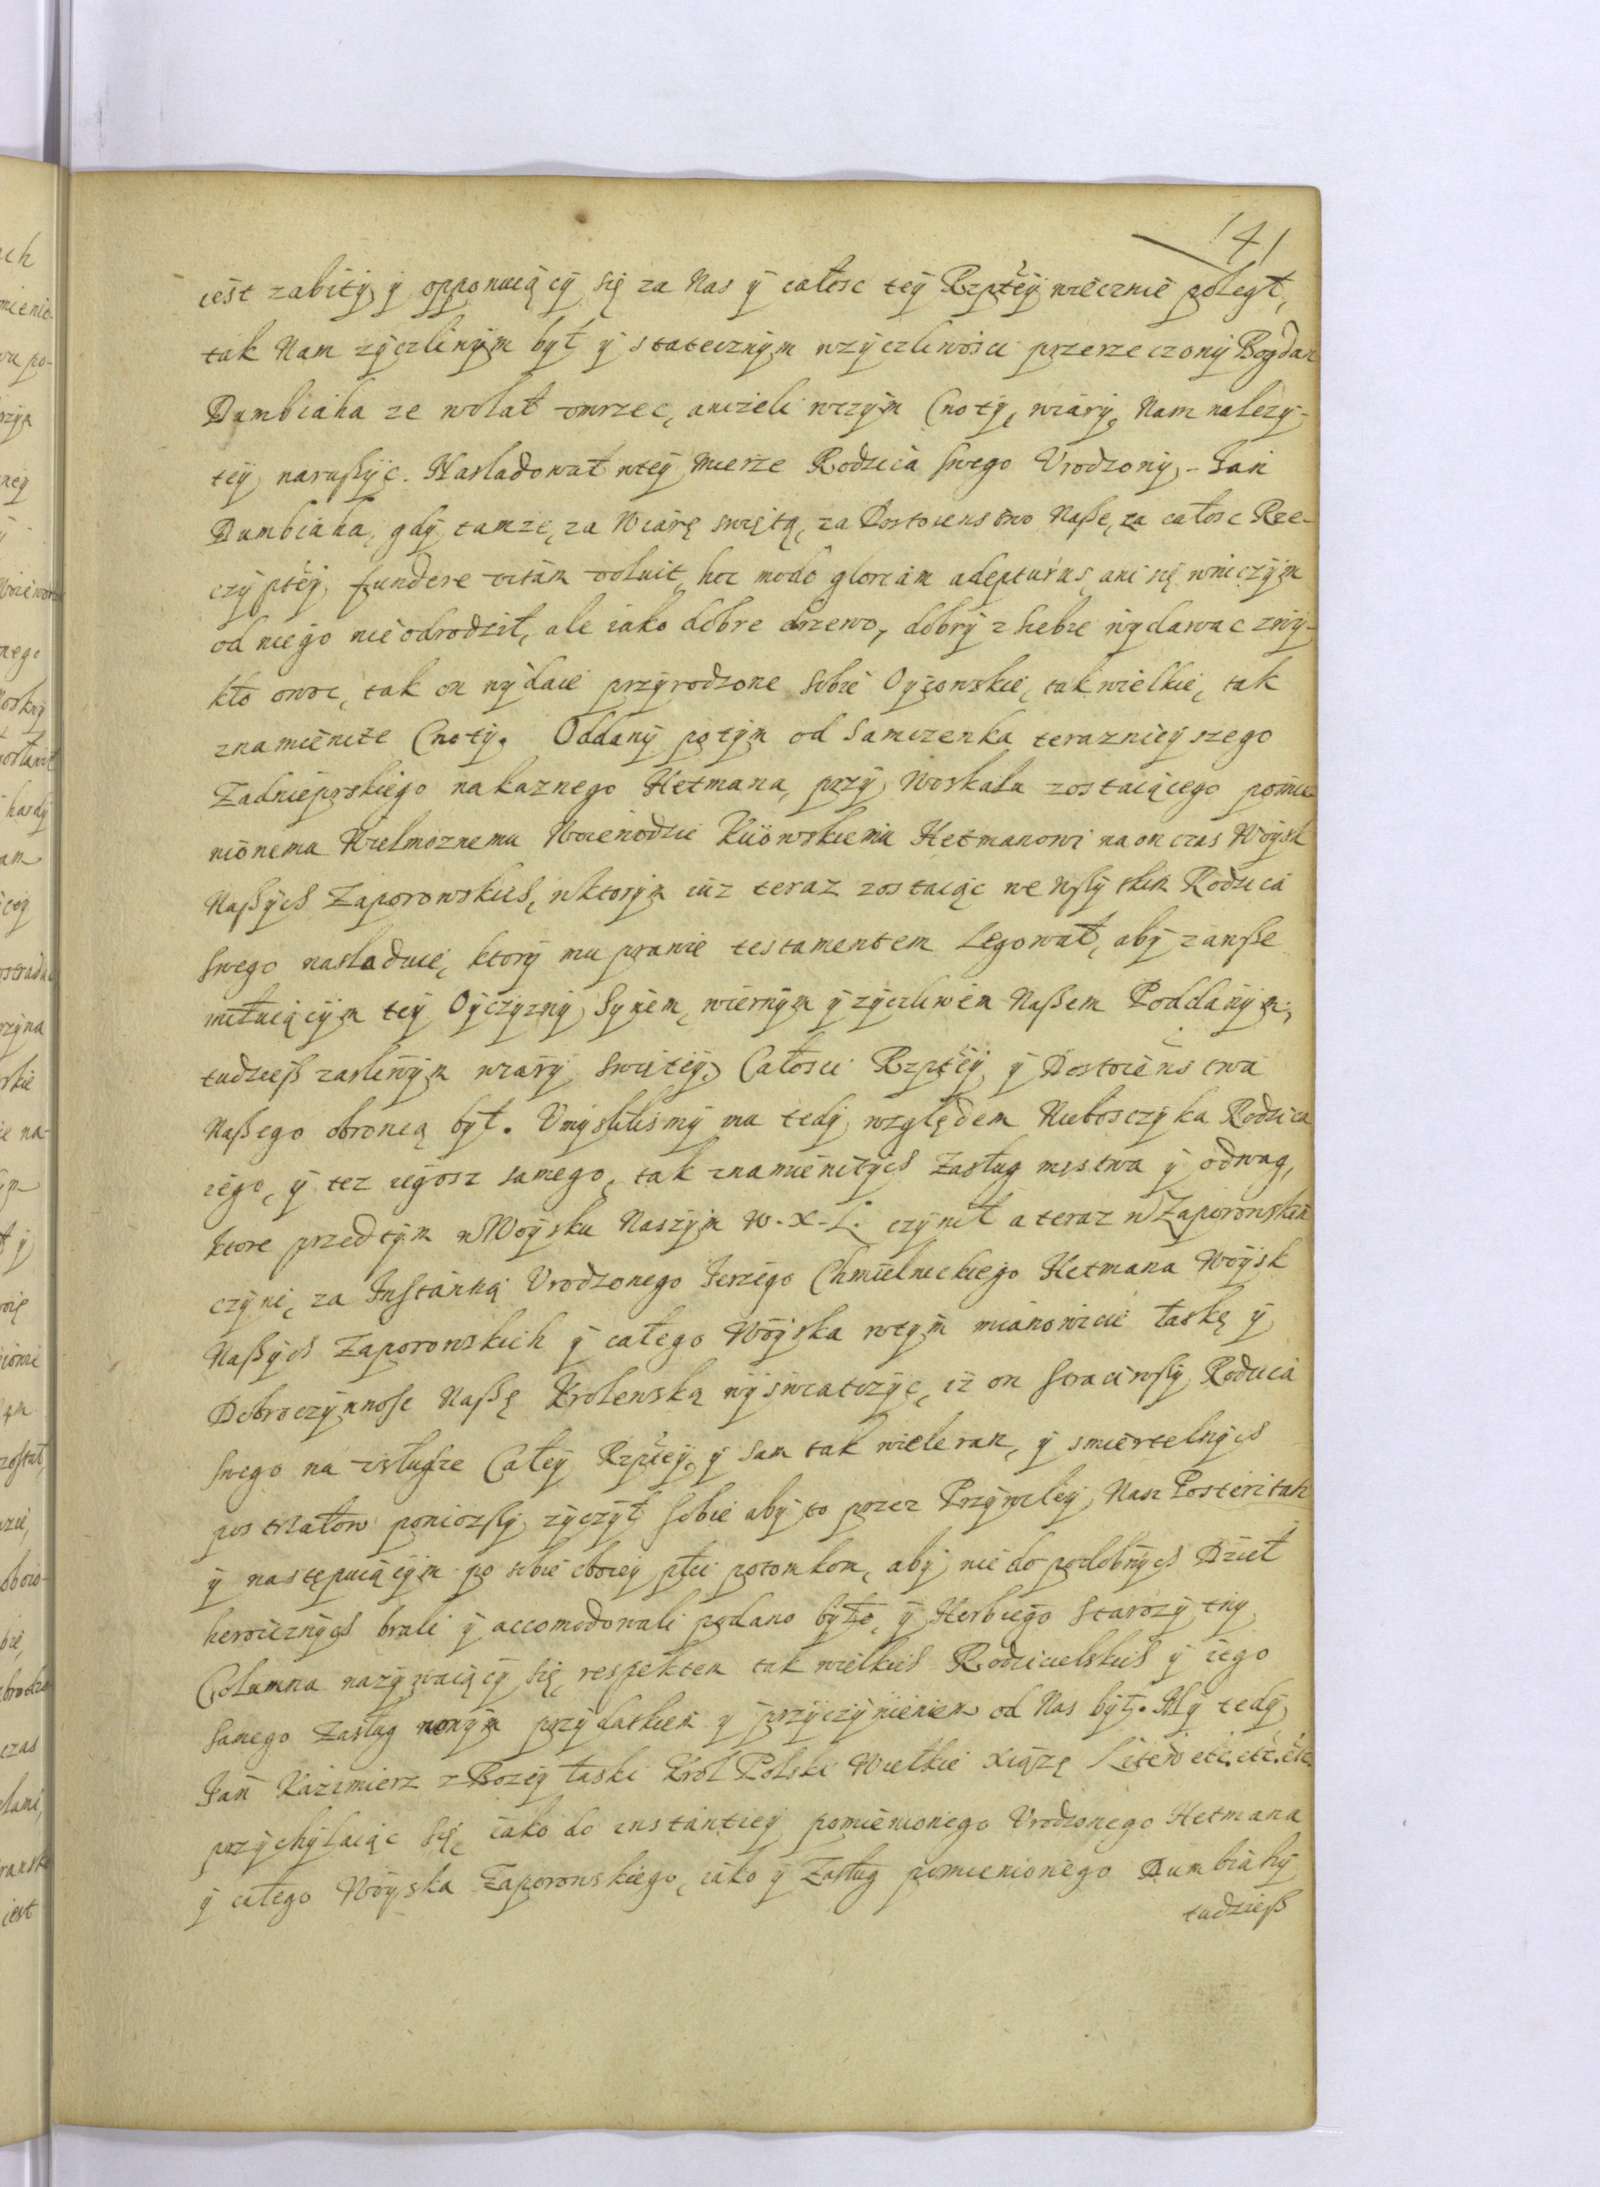 141
iest zabity y opponuiący się za Nas y całosc tey Rzptey wiecznie poległ,
tak Nam zyczliwym był y statecznym wzyczliwosci przerzeczony Bogdan
Dumbiaha ze wolał vmrzec, anizeli wczym Cnoty, wiary, Nam nalezy-
tey narußyc. Nasladował wtey mierze Rodzica swego Vrodzony - Jan
Dumbiaha, gdy tamze, za Wiarę swiętą, za Dostoienstwo Naße, za całosc Rze-
czyptey, fundere vitam voluit, hoc modo gloriam adepturus, ani się wniczym
od niego nie odrodził, ale iako dobre drzewo, dobry z siebie wydawac zwy-
kło owoc, tak on wydaie przyrodzone sobie Oyczowskie, tak wielkie, tak
znamienite Cnoty. Oddany potym od Samczenka teraznieyszego
Zadnieprskiego nakaznego Hetmana, przy Moskalu zostaiącego pomie-
nionemu Wielmoznemu Woiewodzie Kiiowskiemu Hetmanowi na on czas Woysk
Naßych Zaporowskich, wktorym iuz teraz zostaiąc we wßytkim Rodzica
swego nasladuie, ktory mu prawie testamentem Legował, aby zawße
miłuiącym tey Oyczyzny Synem, wiernym y zyczliwem Naßem Poddanym,
tudzieß zarliwym wiary swietey, Całosci Rzptey y Dostoienstwa
Naßego obroncą był. Vmyslilismy mu tedy względem Nieboszczyka Rodzica
iego, y tez iegosz samego, tak znamienitych Zasług męstwa y odwag,
ktore przedtym w Woysku Naszym W. X. L. czynił a teraz w Zaporowskim
czyni, za Instantią Vrodzonego Jerzego Chmielnickiego Hetmana Woysk
Naßych Zaporowskich y całego Woyska wtym mianowicie łaskę y
Dobroczynnosc Naßę Krolewską wyswiatczyc, iz on straciwßy Rodzica
swego na vsłudze Całey Rzptey, y sam tak wiele ran, y smiertelnych
postrzałow poniozßy zyczył sobie aby to przez Przywiley Nasz Posteritati
y następuiącym po sobie oboiey płci potomkom, aby nie do podobnych Dzieł
heroicznych brali y accomodowali podano było, y Herb iego Starozytny
Columna nazywaiący się respektem tak wielkich Rodzicielskich y iego
samego Zasług nowym przydatkiem y przyczynieniem od Nas był. My tedy
Jan Kazimierz z Bozey łaski Krol Polski Wielkie Xiążę Litew etc. etc. etc.
przychylaiąc się iako do instantiey pomienionego Vrodzonego Hetmana
y całego Woyska Zaporowskiego, iako y Zasług pomienionego Dumbiahy
tudzieß